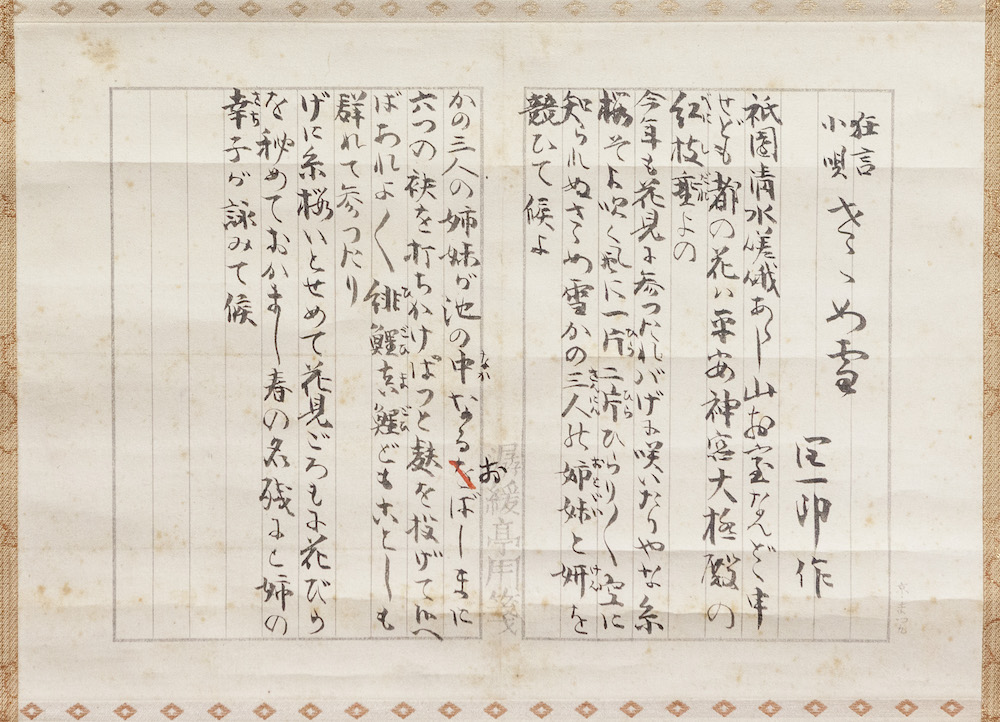 狂言
小唄 さゝめ雪
潤一郎作
祇園清水嵯峨あらし山お室なんど申
せども都の花ハ平安神宮大極殿の
紅枝垂よの
今年も花見に参つたればげに咲いたりやな糸
桜そよ吹く風に一片二片ひらり〳〵空に
知られぬさゝめ雪かの三人の姉妹と妍を
競ひて候よ
潺湲亭用箋
かの三人の姉妹が池の中なるおばしまに
六つの袂を打ちかけぱつと麩を投げて候へ
ばあれよ〳〵緋鯉真鯉どもことしも
群れて参つたり
げに糸桜いとせめて花見ごろもに花びら
を秘めておかまし春の名残にと姉の
幸子が詠みて候